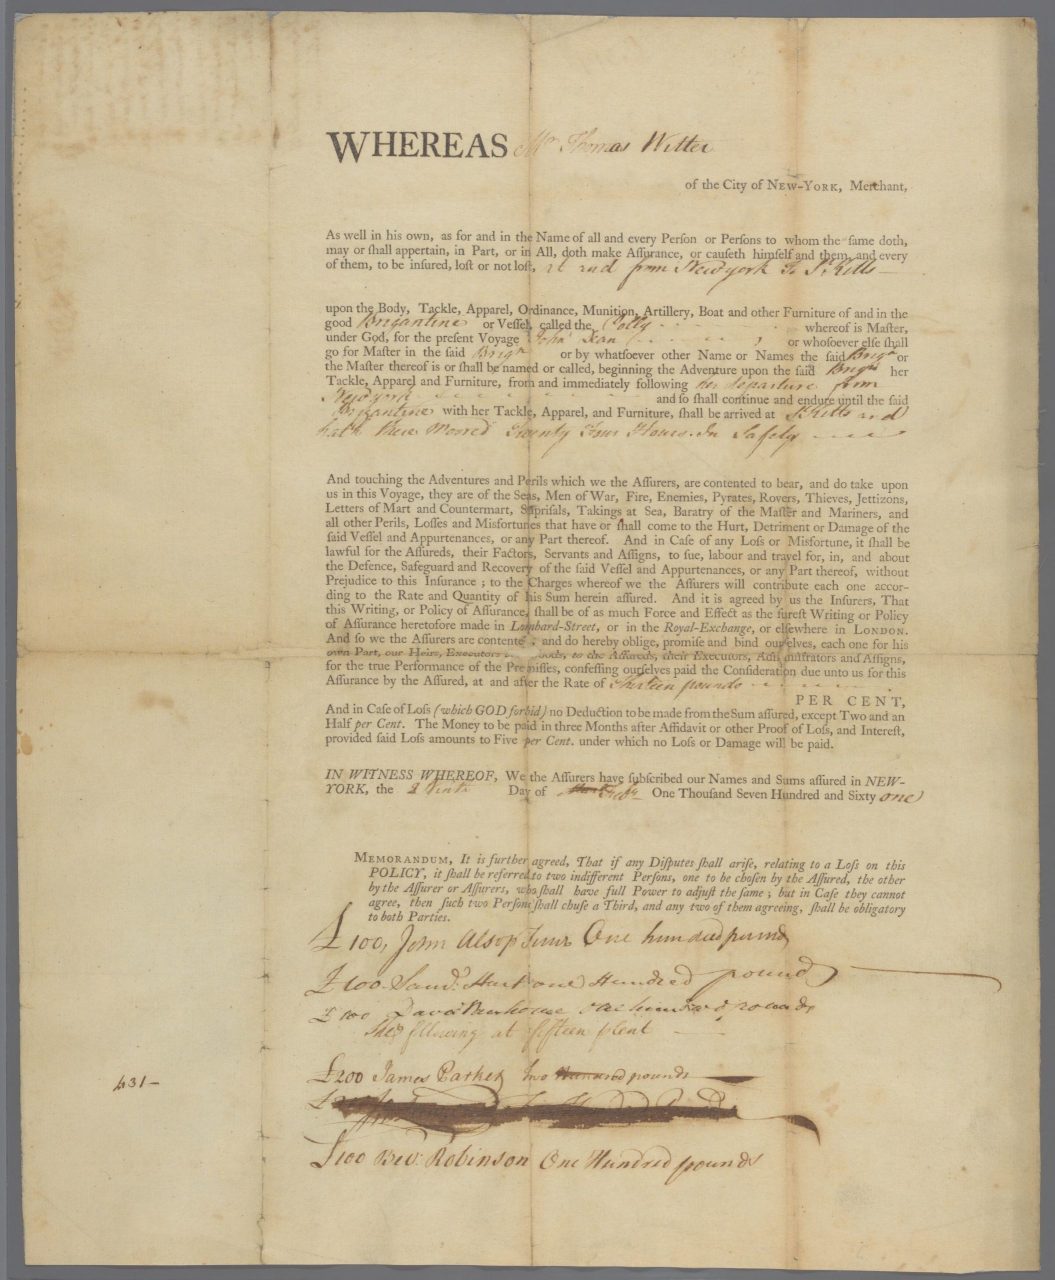 WHEREAS Mr Thomas Witter
of the City of NEW-YORK, Merchant,
As well in his own, as for and in the Name of all and every Perſon or Perſons to whom the ſame doth,
may or ſhall appertain, in Part, or in All, doth make Aſſurance, or cauſeth himſelf and them, and every
of them, to be inſured, loſt or not loſt, at and from New york To St Kitts
upon the Body, Tackle, Apparel, Ordinance, Munition, Artillery, Boat and other Furniture of and in the
good Brigantine or Veſſel, called the Polly whereof is Maſter,
under God, for the preſent Voyage John Dean, or whoſoever elſe ſhall
go for Maſter in the ſaid Brign or by whatſoever other Name or Names the ſaid Brign or
the Maſter thereof is or ſhall be named or called, beginning the Adventure upon the ſaid Brign her
Tackle, Apparel and Furniture, from and immediately following her departure from
New york and ſo ſhall continue and endure until the ſaid
Brigantine with her Tackle, Apparel, and Furniture, ſhall be arrived at St Kitts and
hath there Moored Twenty Four Hours In Safety
And touching the Adventures and Perils which we the Aſſurers, are contented to bear, and do take upon
us in this Voyage, they are of the Seas, Men of War, Fire, Enemies, Pyrates, Rovers, Thieves, Jettizons,
Letters of Mart and Countermart, Supriſals, Takings at Sea, Baratry of the Maſter and Mariners, and
all other Perils, Loſſes and Misfortunes that have or ſhall come to the Hurt, Detriment or Damage of the
ſaid Veſſel and Appurtenances, or any Part thereof. And in Caſe of any Loſs or Misfortune, it ſhall be
lawful for the Aſſureds, their Factors, Servants and Aſſigns, to ſue, labour and travel for, in, and about
the Defence, Safeguard and Recovery of the ſaid Veſſel and Appurtenances, or any Part thereof, without
Prejudice to this Inſurance ; to the Charges whereof we the Aſſurers will contribute each one accor-
ding to the Rate and Quantity of his Sum herein aſſured. And it is agreed by us the Inſurers, That
this Writing, or Policy of Aſſurance, ſhall be of as much Force and Effect as the ſureſt Writing or Policy
of Aſſurance heretofore made in Lombard-Street, or in the Royal-Exchange, or elſewhere in LONDON.
And ſo we the Aſſurers are contented ; and do hereby oblige, promiſe and bind ourſelves, each one for his
own Part, our Heirs, Executors Goods, to the Aſſureds, their Executors, Adminiſtrators and Aſſigns,
for the true Performance of the Premiſſes, confeſſing ourſelves paid the Conſideration due unto us for this
Aſſurance by the Aſſured, at and after the Rate of pounds
PER CENT,
And in Caſe of Loſs (which GOD forbid) no Deduction to be made from the Sum aſſured, except Two and an
Half per Cent. The Money to be paid in three Months after Affidavit or other Proof of Loſs, and Intereſt,
provided ſaid Loſs amounts to Five per Cent. under which no Loſs or Damage will be paid.
IN WITNESS WHEREOF, We the Aſſurers have ſubſcribed our Names and Sums aſſured in NEW-
YORK, the Day of Feby One Thouſand Seven Hundred and Sixty one
MEMORANDUM, It is further agreed, That if any Diſputes ſhall ariſe, relating to a Loſs on this
POLICY, it ſhall be referred to two indifferent Perſons, one to be choſen by the Aſſured, the other
by the Aſſurer or Aſſurers, who ſhall have full Power to adjuſt the ſame ; but in Caſe they cannot
agree, then ſuch two Perſons ſhall chuſe a Third, and any two of them agreeing, ſhall be obligatory
to both Parties.
£100, John Alsop Junr One hundred pounds
£100. Saml. Hart one Hundred pounds
£100 one hundred pounds
The following at fifteen p Cent
£200 James Parker two Hundred pounds
431-
£100 Bev: Robinson One Hundred pounds